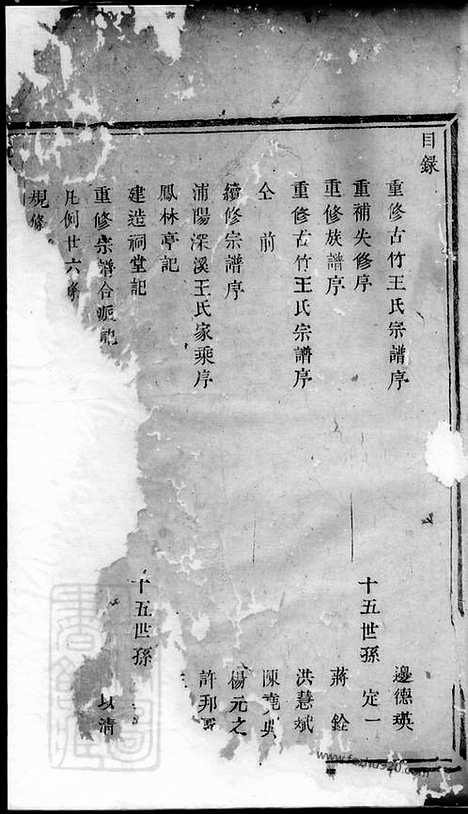 目錄
重修古竹王氏宗譜序 邊德瑛
重補失修序 十五世孫 定一
重修族譜序 蔣銓
重修古竹王氏宗譜序 洪慧斌
仝前 陳堯典
續修宗譜序 楊元之
浦陽深溪王氏家乘序 許邦
鳳林亭記
建造祠堂記 十五世孫
重修宗譜合派記 以清
凡例廿六條
規條